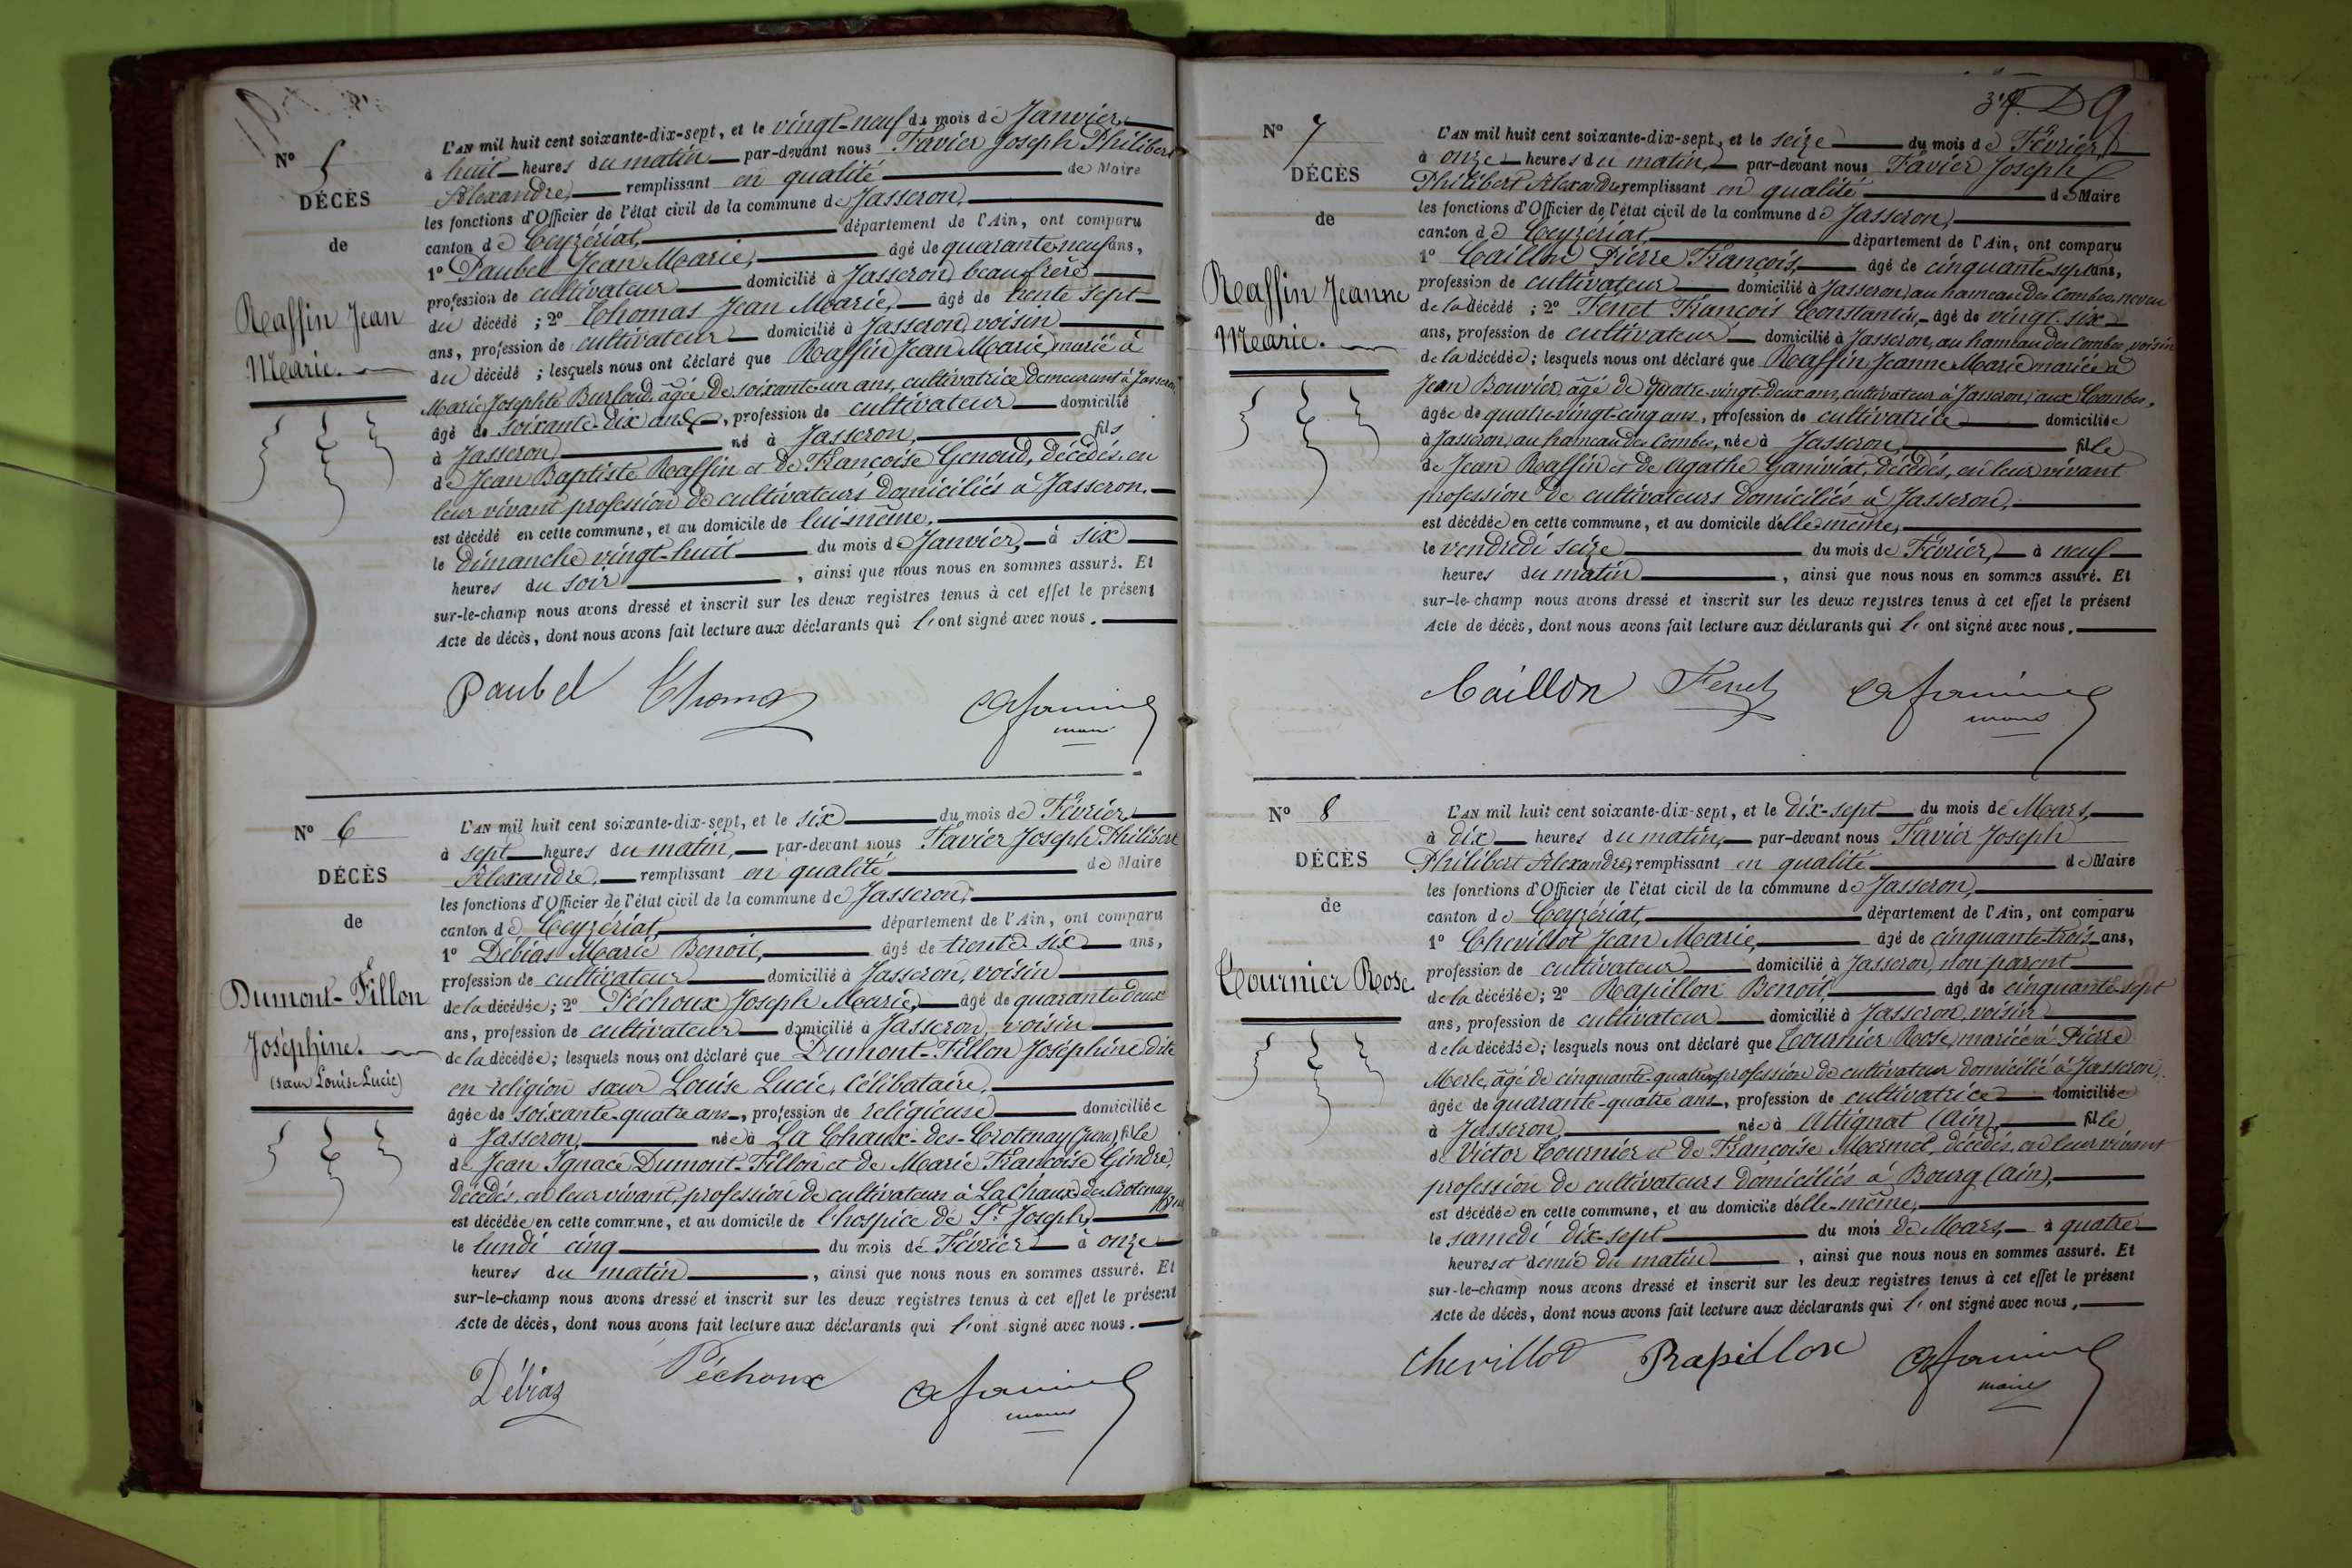 N° 5
DÉCÈS
de
Raffin Jean
Marie.
L'AN mil huit cent soixante-dix-sept, et le vingt-neuf du mois de Janvier,
à huit heures du matin par-devant nous Favier Joseph Philibert
Alexandre, remplissant en qualité de Maire
les fonctions d'Officier de l'état civil de la commune de Jasseron,
canton de Ceyzériat, département de l'Ain, ont comparu
1° Paubel Jean Marie, âgé de quarante-neuf ans,
profession de cultivateur domicilié à Jasseron, beau frère
du décédé ; 2° Thomas Jean Marie, âgé de trente sept
ans, profession de cultivateur domicilié à Jasseron, voisin
du décédé ; lesquels nous ont déclaré que Raffin Jean Marie, marié à
Marie Josephte Burtoud, âgée de soixante-un ans, cultivatrice demeurant à Jasseron,
âgé de soixante-dix ans, profession de cultivateur domicilié
à Jasseron, né à Jasseron, fils
de Jean Baptiste Raffin et de Françoise Genoud, décédés, en
leur vivant profession de cultivateurs domiciliés à Jasseron.
est décédé en cette commune, et au domicile de lui-même,
le dimanche vingt-huit du mois de Janvier, à six
heures du soir, ainsi que nous nous en sommes assuré. Et
sur-le-champ nous avons dressé et inscrit sur les deux registres tenus à cet effet le présent
Acte de décès, dont nous avons fait lecture aux déclarants qui l'ont signé avec nous.
Paubel Thomas
N° 6
DÉCÈS
de
Dumont-Fillon
Joséphine.
(sœur Louise Lucie)
L'AN mil huit cent soixante-dix-sept, et le six du mois de Février
à sept heures du matin, par-devant nous Favier Joseph Philibert
Alexandre, remplissant en qualité de Maire
les fonctions d'Officier de l'état civil de la commune de Jasseron,
canton de Ceyzériat, département de l'Ain, ont comparu
1° Débias Marie Benoit, âgé de trente-six ans,
profession de cultivateur domicilié à Jasseron, voisin
de la décédée ; 2° Péchoux Joseph Marie, âgé de quarante deux
ans, profession de cultivateur domicilié à Jasseron, voisin
de la décédée ; lesquels nous ont déclaré que Dumont-Fillon Joséphine dite
en religion sœur Louise Lucie, Célibataire,
âgée de soixante-quatre ans, profession de religieuse domiciliée
à Jasseron, née à La Chaux-des-Crotenay (Jura), fille
de Jean Ignace Dumont-Fillon et de Marie Françoise Gindre,
décédés, en leur vivant, profession de cultivateurs à La Chaux-des-Crotenay Jura
est décédée en cette commune, et au domicile de l'hospice de St Joseph,
le lundi cinq du mois de Février à onze
heures du matin, ainsi que nous nous en sommes assuré. Et
sur-le-champ nous avons dressé et inscrit sur les deux registres tenus à cet effet le présent
Acte de décès, dont nous avons fait lecture aux déclarants qui l'ont signé avec nous.
Débias Péchoux
N° 7
DÉCÈS
de
Raffin Jeanne
Marie.
L'AN mil huit cent soixante-dix-sept, et le seize du mois de Février,
à onze heures du matin, par-devant nous Favier Joseph
Philibert Alexandre, remplissant en qualité de Maire
les fonctions d'Officier de l'état civil de la commune de Jasseron,
canton de Ceyzériat, département de l'Ain, ont comparu
1° Caillon Pierre François, âgé de cinquante-sept ans,
profession de cultivateur domicilié à Jasseron, au hameau des Combes, neveu
de la décédé ; 2° Fenet François Constantin, âgé de vingt-six
ans, profession de cultivateur domicilié à Jasseron, au hameau des Combes, voisin
de la décédée ; lesquels nous ont déclaré que Raffin Jeanne Marie mariée à
Jean Bouvier, âgé de quatre-vingt-deux ans, cultivateur à Jasseron, aux Combes,
âgée de quatre-vingt-cinq ans, profession de cultivatrice domiciliée
à Jasseron, au hameau des Combes, née à Jasseron, fille
de Jean Raffin et de Agathe Ganiviat, décédés, en leur vivant
profession de cultivateurs domiciliés à Jasseron,
est décédée en cette commune, et au domicile d'elle-même,
le vendredi seize du mois de Février, à neuf
heures du matin, ainsi que nous nous en sommes assuré. Et
sur-le-champ nous avons dressé et inscrit sur les deux registres tenus à cet effet le présent
Acte de décès, dont nous avons fait lecture aux déclarants qui l'ont signé avec nous.
Caillon Fenet
N° 8
DÉCÈS
de
Tournier Rose.
L'AN mil huit cent soixante-dix-sept, et le dix-sept du mois de Mars,
à dix heures du matin, par-devant nous Favier Joseph
Philibert Alexandre, remplissant en qualité de Maire
les fonctions d'Officier de l'état civil de la commune de Jasseron,
canton de Ceyzériat, département de l'Ain, ont comparu
1° Chevillot Jean Marie, âgé de cinquante-trois ans,
profession de cultivateur domicilié à Jasseron, non parent
de la décédée ; 2° Rapillon Benoit, âgé de cinquante-sept
ans, profession de cultivateur domicilié à Jasseron, voisin
de la décédée ; lesquels nous ont déclaré que Tournier Rose, mariée à Pierre
Merle, âgé de cinquante-quatre ans, profession de cultivateur domicilié à Jasseron,
âgée de quarante-quatre ans, profession de cultivatrice domiciliée
à Jasseron, née à Attignat (Ain), fille
de Victor Tournier et de Françoise Mermet, décédés, en leur vivant
profession de cultivateurs domiciliés à Bourg (Ain),
est décédée en cette commune, et au domicile d'elle-même,
le samedi dix-sept du mois de Mars, à quatre
heures et demie du matin, ainsi que nous nous en sommes assuré. Et
sur-le-champ nous avons dressé et inscrit sur les deux registres tenus à cet effet le présent
Acte de décès, dont nous avons fait lecture aux déclarants qui l'ont signé avec nous.
Chevillot Rapillon
maire